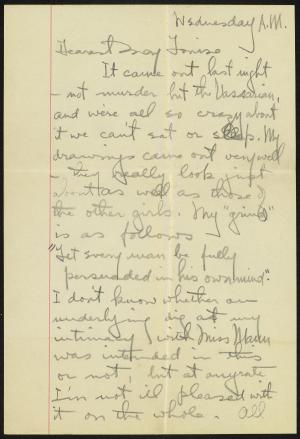 Wednesday A.M.
Dearest Louise
It came out last night
- not murder but the Vassarion,
and we're all so crazy about
it we can't eat or sleep. My
drawings came out very well
- they really look just
about as well as those of
the other girls. My "grind"
is as follows
"Let every man be fully
persuaded in his own mind".
I don't know whether an
underlying dig at my
intimacy with Miss
was intended in this
or not, but at anyrate
I'm not ill pleased with
it on the whole. All